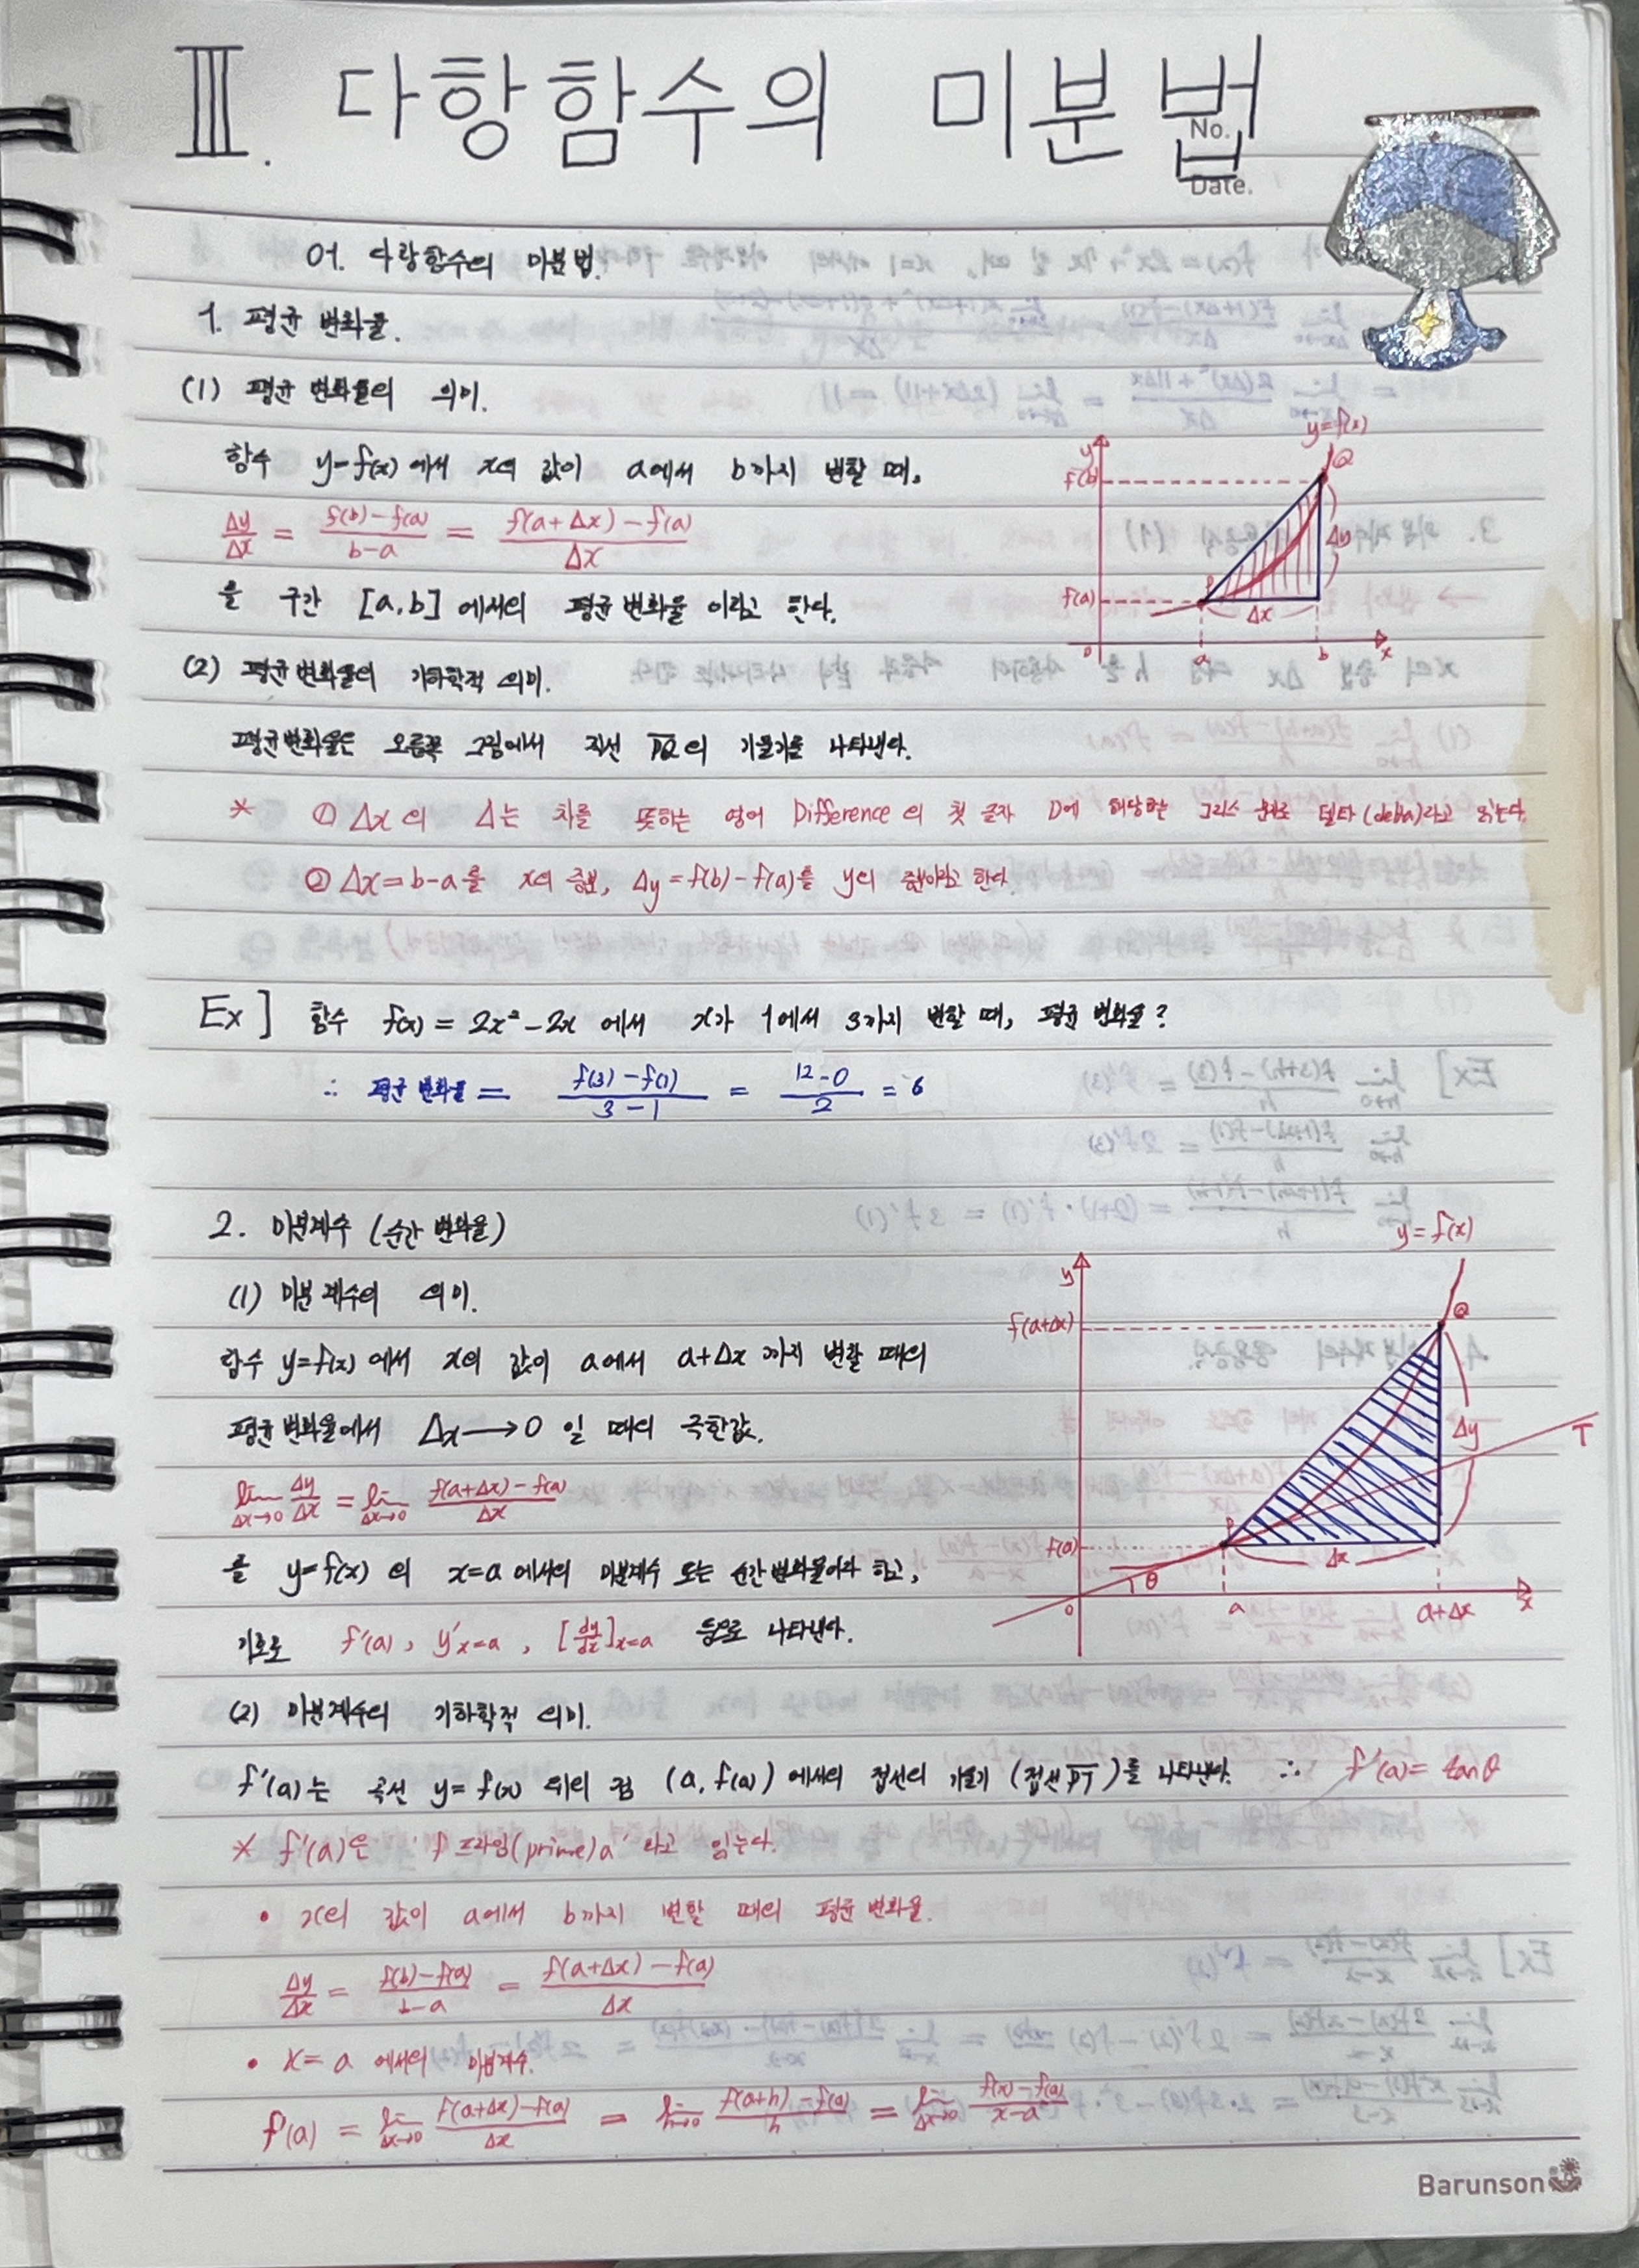 Ⅲ. 다항함수의 미분법
No.
Date.
01. 다항함수의 미분법.
1. 평균 변화율.
(1) 평균 변화율의 의미.
함수 y=f(x) 에서 x의 값이 a에서 b까지 변할 때,
Δy/Δx = (f(b)-f(a))/(b-a) = (f(a+Δx)-f(a))/Δx
을 구간 [a,b] 에서의 평균변화율 이라고 한다.
y
y=f(x)
f(b)
Q
Δy
P
f(a)
Δx
0 a b x
(2) 평균변화율의 기하학적 의미.
평균변화율은 오른쪽 그림에서 직선 PQ의 기울기를 나타낸다.
* ① Δx의 Δ는 차를 뜻하는 영어 Difference의 첫 글자 D에 해당하는 그리스 문자로 델타(delta)라고 읽는다.
② Δx=b-a를 x의 증분, Δy=f(b)-f(a)를 y의 증분이라고 한다.
Ex] 함수 f(x) = 2x²-2x 에서 x가 1에서 3까지 변할 때, 평균 변화율?
∴ 평균 변화율 = (f(3)-f(1))/(3-1) = (12-0)/2 = 6
2. 미분계수 (순간 변화율)
(1) 미분계수의 의미.
함수 y=f(x) 에서 x의 값이 a에서 a+Δx 까지 변할 때의
평균변화율에서 Δx→0 일 때의 극한값.
lim Δx→0 Δy/Δx = lim Δx→0 (f(a+Δx)-f(a))/Δx
를 y=f(x) 의 x=a 에서의 미분계수 또는 순간변화율이라 하고,
기호로 f'(a), y'x=a, [dy/dx]x=a 등으로 나타낸다.
y
y=f(x)
f(a+Δx)
Q
Δy
T
P
f(a)
Δx
θ
0 a a+Δx x
(2) 미분계수의 기하학적 의미.
f'(a)는 곡선 y=f(x) 위의 점 (a, f(a)) 에서의 접선의 기울기 (접선 PT)를 나타낸다. ∴ f'(a)= tanθ
* f'(a)은 'f 프라임(prime)a' 라고 읽는다.
• x의 값이 a에서 b까지 변할 때의 평균 변화율.
Δy/Δx = (f(b)-f(a))/(b-a) = (f(a+Δx)-f(a))/Δx
• x=a 에서의 미분계수.
f'(a) = lim Δx→0 (f(a+Δx)-f(a))/Δx = lim h→0 (f(a+h)-f(a))/h = lim Δx→0 (f(x)-f(a))/(x-a)
Barunson